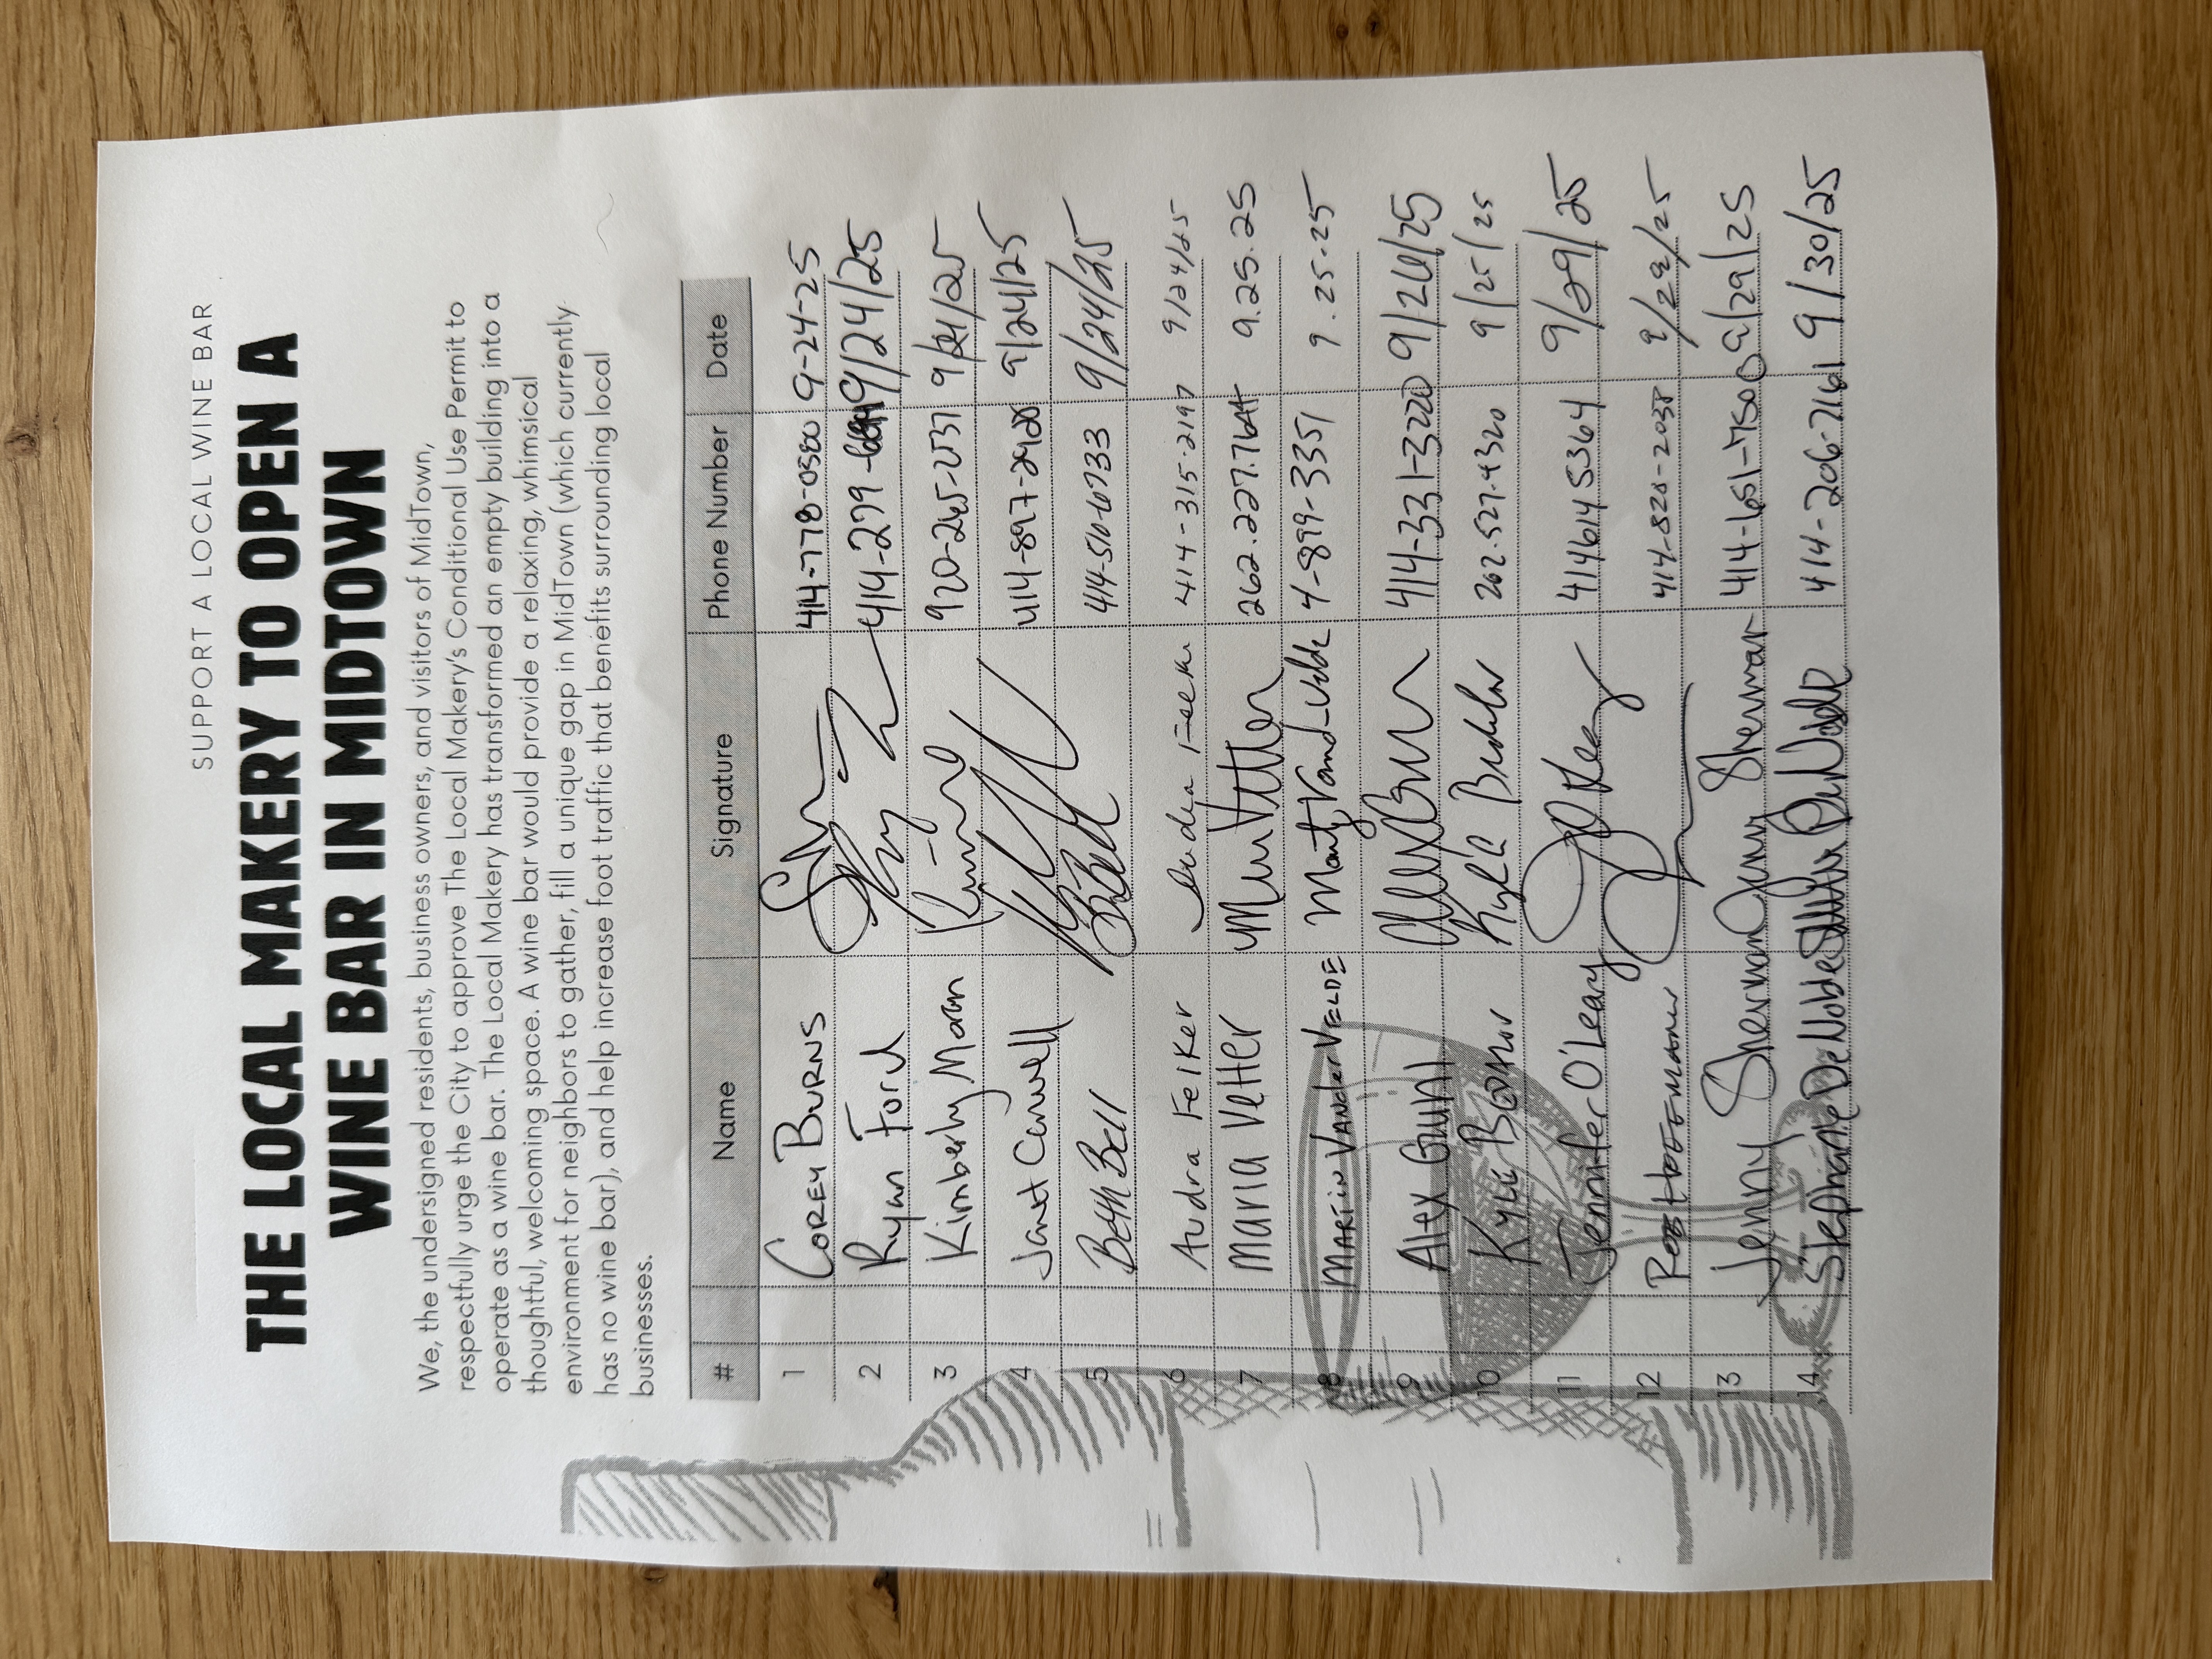 SUPPORT A LOCAL WINE BAR
THE LOCAL MAKERY TO OPEN A
WINE BAR IN MIDTOWN
We, the undersigned residents, business owners, and visitors of MidTown,
respectfully urge the City to approve The Local Makery's Conditional Use Permit to
operate as a wine bar. The Local Makery has transformed an empty building into a
thoughtful, welcoming space. A wine bar would provide a relaxing, whimsical
environment for neighbors to gather, fill a unique gap in MidTown (which currently
has no wine bar), and help increase foot traffic that benefits surrounding local
businesses.
# Name Signature Phone Number Date
1 COREY BURNS 414-778-0580 9-24-25
2 Ryan Ford 414-279- 9/24/25
3 Kimberly Moran 920-265-2537 9/24/25
4 Janet Carwell 414-897-2428 9/24/25
5 Beth Bell 414-510-6733 9/24/25
6 Audra Felker 414-315-2197 9/24/25
7 Maria Vetter 262.227.7644 9.25.25
8 MARTIN VANDER VELDE 4-899-3351 9.25.25
9 Alex 414-331-3220 9/26/25
10 Kyle 262.527.4320 9/25/25
11 Jennifer O'Leary 4146145364 9/29/25
12 414-828-2038 9/29/25
13 Jenny Sherman Jenny Sherman 414-651-7500 9/29/25
14 Stephanie DeNoble 414-206-7161 9/30/25